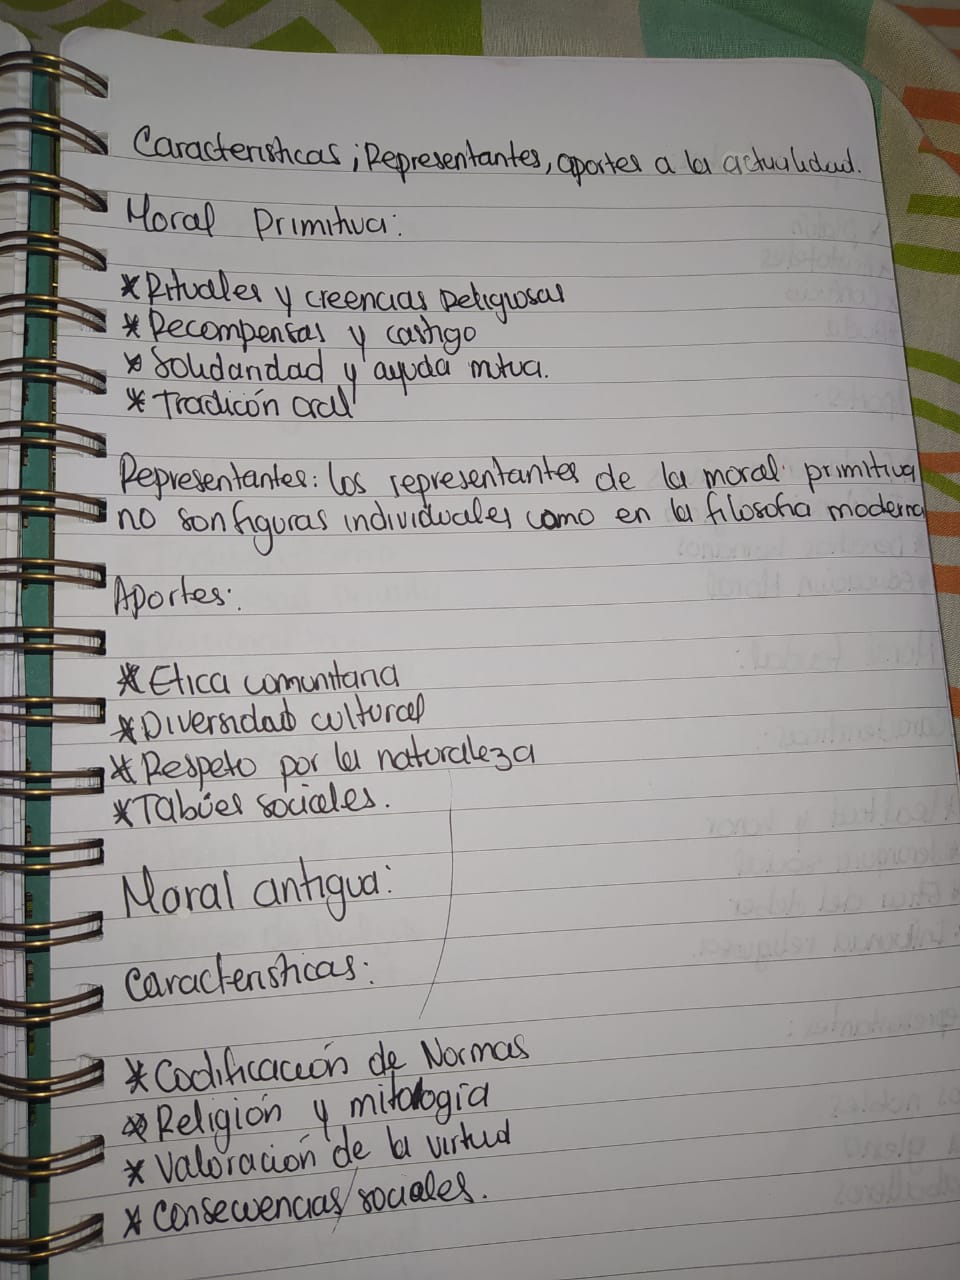 Características, Representantes, aportes a la actualidad.
Moral Primitiva:
* Rituales y creencias Religiosas
* Recompensas y castigo
* Solidaridad y ayuda mutua.
* Tradición oral
Representantes: los representantes de la moral primitiva
no son figuras individuales como en la filosofía moderna
Aportes:
* Etica comunitaria
* Diversidad cultural
* Respeto por la naturaleza
* Tabúes sociales.
Moral antigua:
Características:
* Codificación de Normas
* Religión y mitología
* Valoración de la virtud
* Consecuencias sociales.